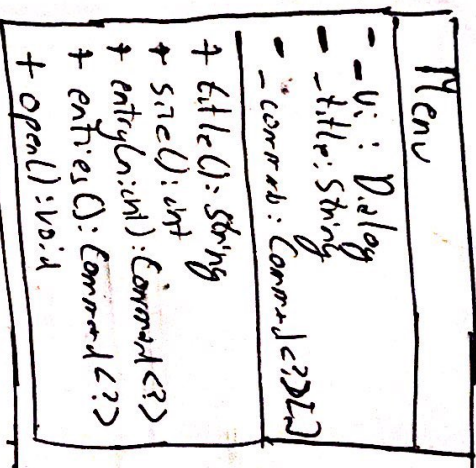 Menu
- _ui: Dialog
- _title: String
- _commands: Command<?>[]
+ title(): String
+ size(): int
+ entry(n:int): Command<?>
+ entries(): Command<?>
+ open(): void